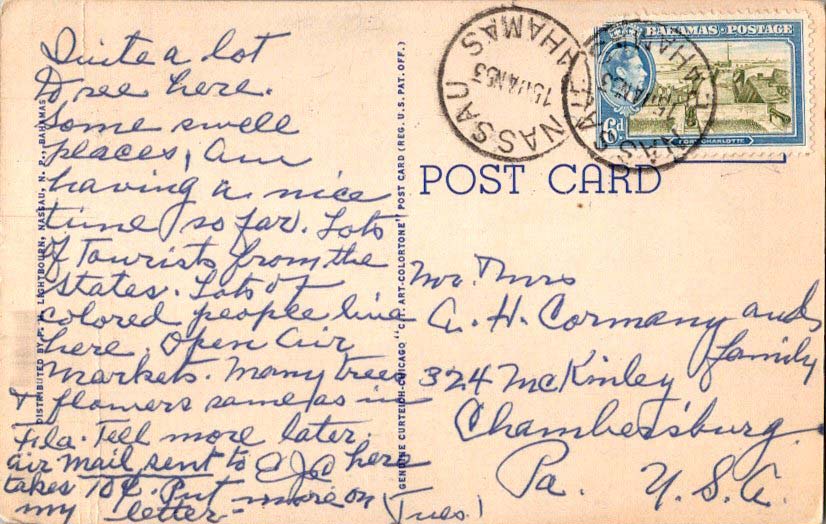 Quite a lot
to see here.
Some swell
places, Am
having a nice
time so far. Lots
of Tourists from the
States. Lots of
colored people live
here. Open Air
Markets. Many trees
& flowers same as in
Fla. Tell more later.
air mail sent to here
takes 10¢. Put more on
my letter-
(Tues.)
DISTRIBUTED BY LIGHTBOURN, NASSAU, N. P., BAHAMAS
GENUINE CURTEICH-CHICAGO "C.T. ART-COLORTONE" POST CARD (REG. U.S. PAT. OFF.)
NASSAU BAHAMAS
15 JAN 53
NASSAU BAHAMAS
15 JAN 53
BAHAMAS · POSTAGE
6d
FORT CHARLOTTE
POST CARD
Mr. & Mrs
A. H. Cormany and
family
324 McKinley
Chambersburg
Pa. U.S.A.